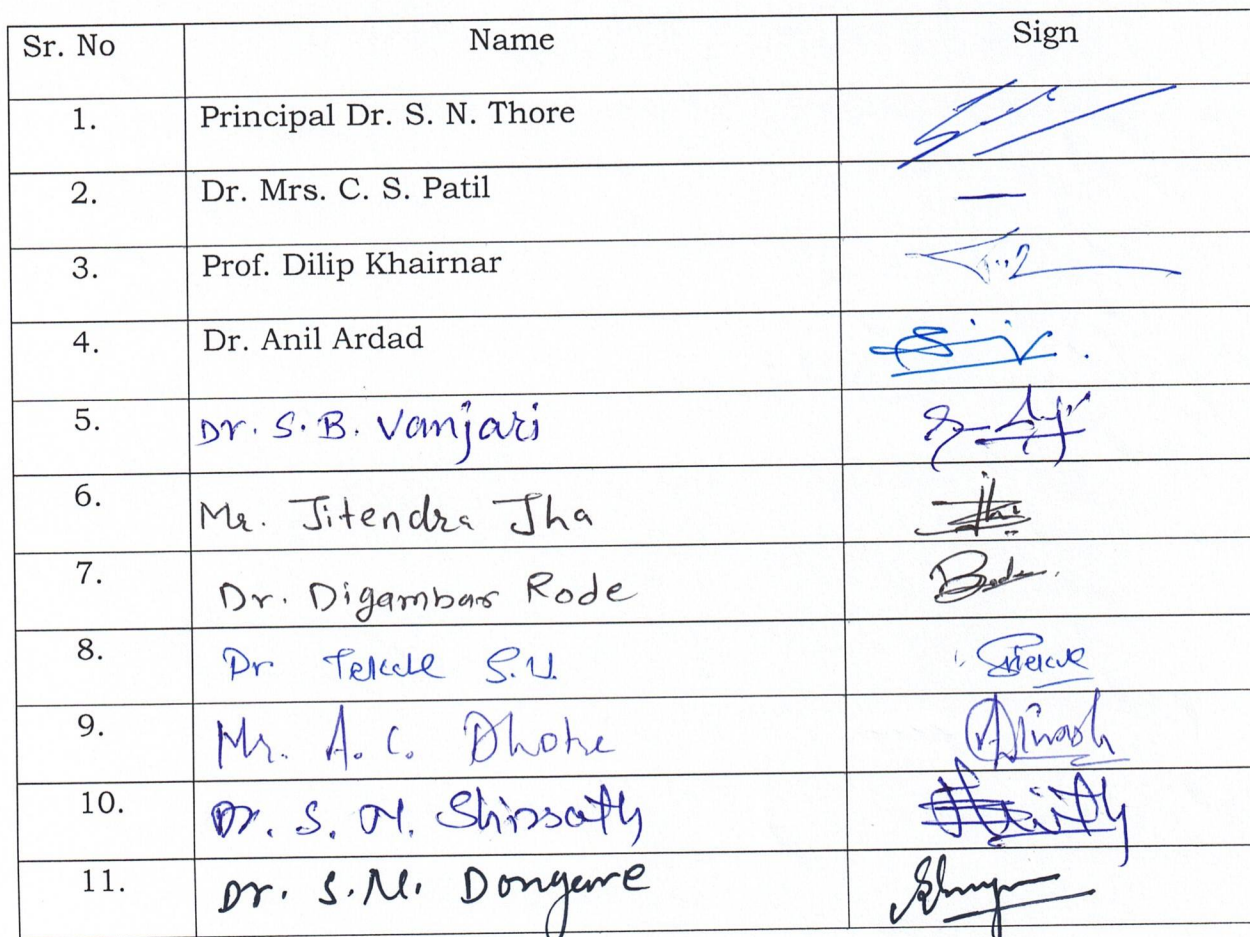 Sr. No Name Sign
1. Principal Dr. S. N. Thore
2. Dr. Mrs. C. S. Patil —
3. Prof. Dilip Khairnar
4. Dr. Anil Ardad
5. Dr. S. B. Vanjari
6. Mr. Jitendra Jha
7. Dr. Digambar Rode
8. Dr Tekale S.U.
9. Mr. A. C. Dhote
10. Dr. S. M. Shirsath
11. Dr. S.M. Dongare